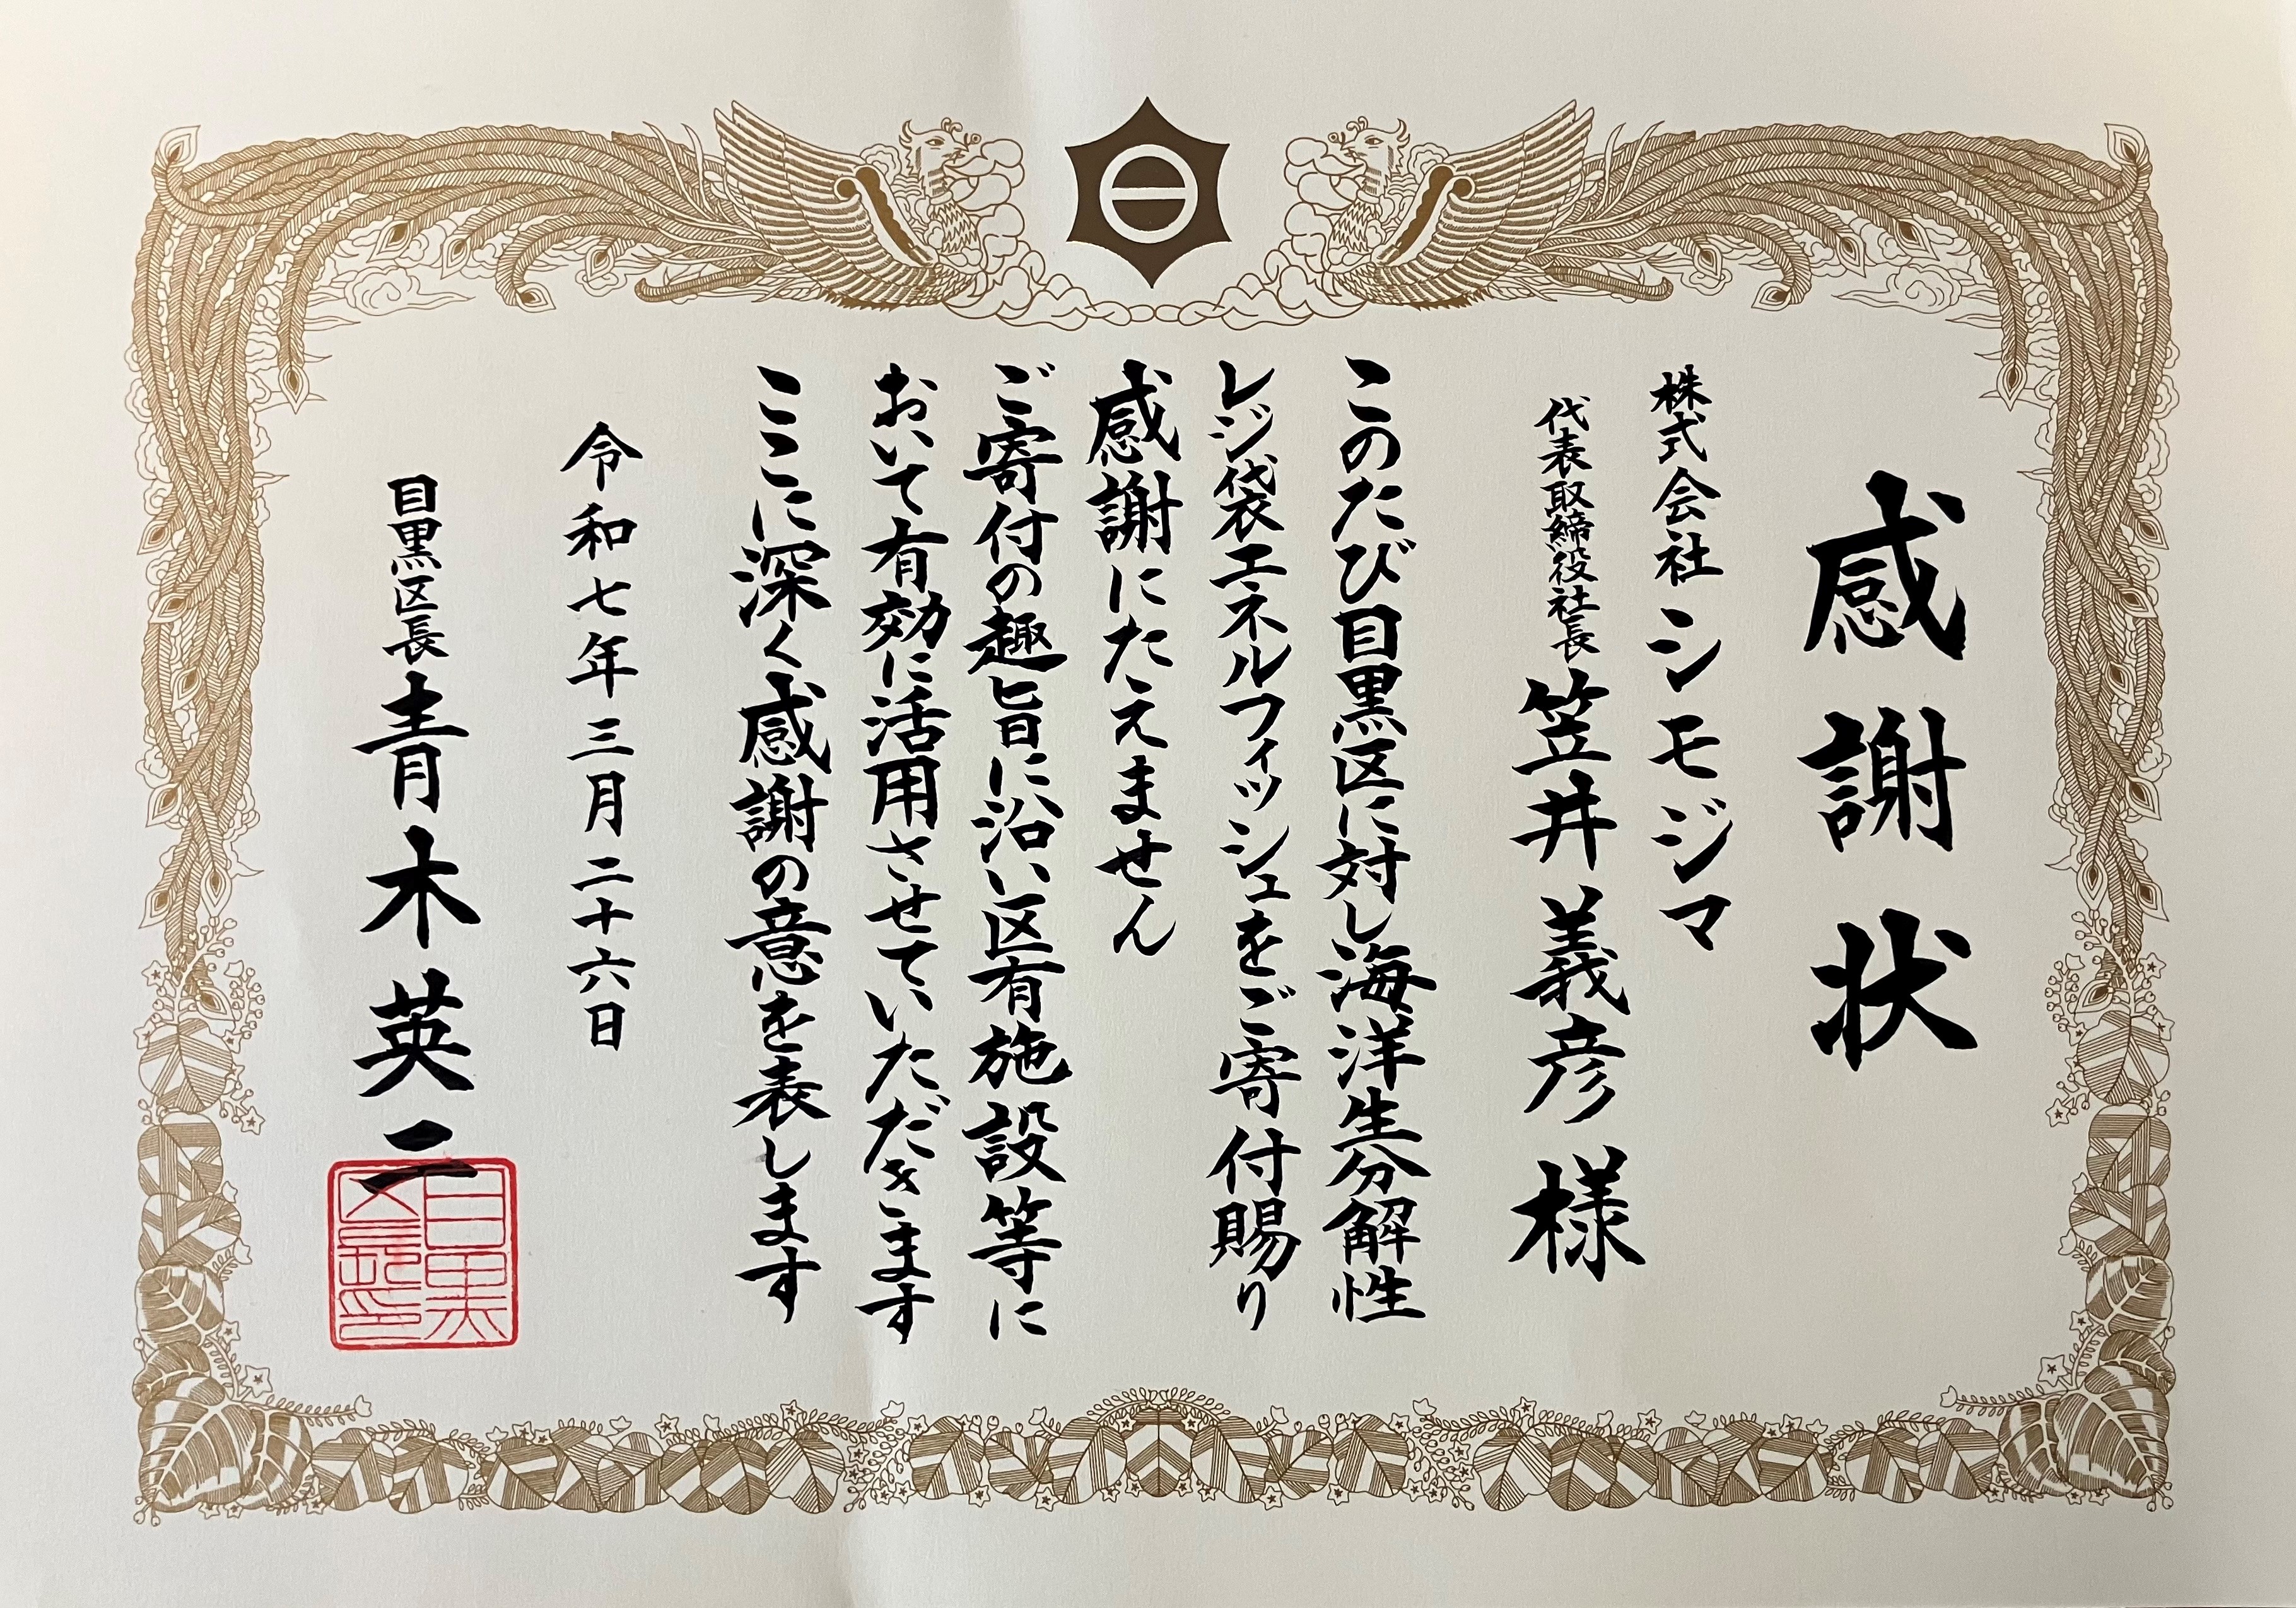 感謝状
株式会社シモジマ
代表取締役社長 笠井義彦様
このたび目黒区に対し海洋生分解性
レジ袋エネルフィッシュをご寄付賜り
感謝にたえません
ご寄付の趣旨に沿い区有施設等に
おいて有効に活用させていただきます
ここに深く感謝の意を表します
令和七年三月二十六日
目黒区長 青木英二
目黒
区長印